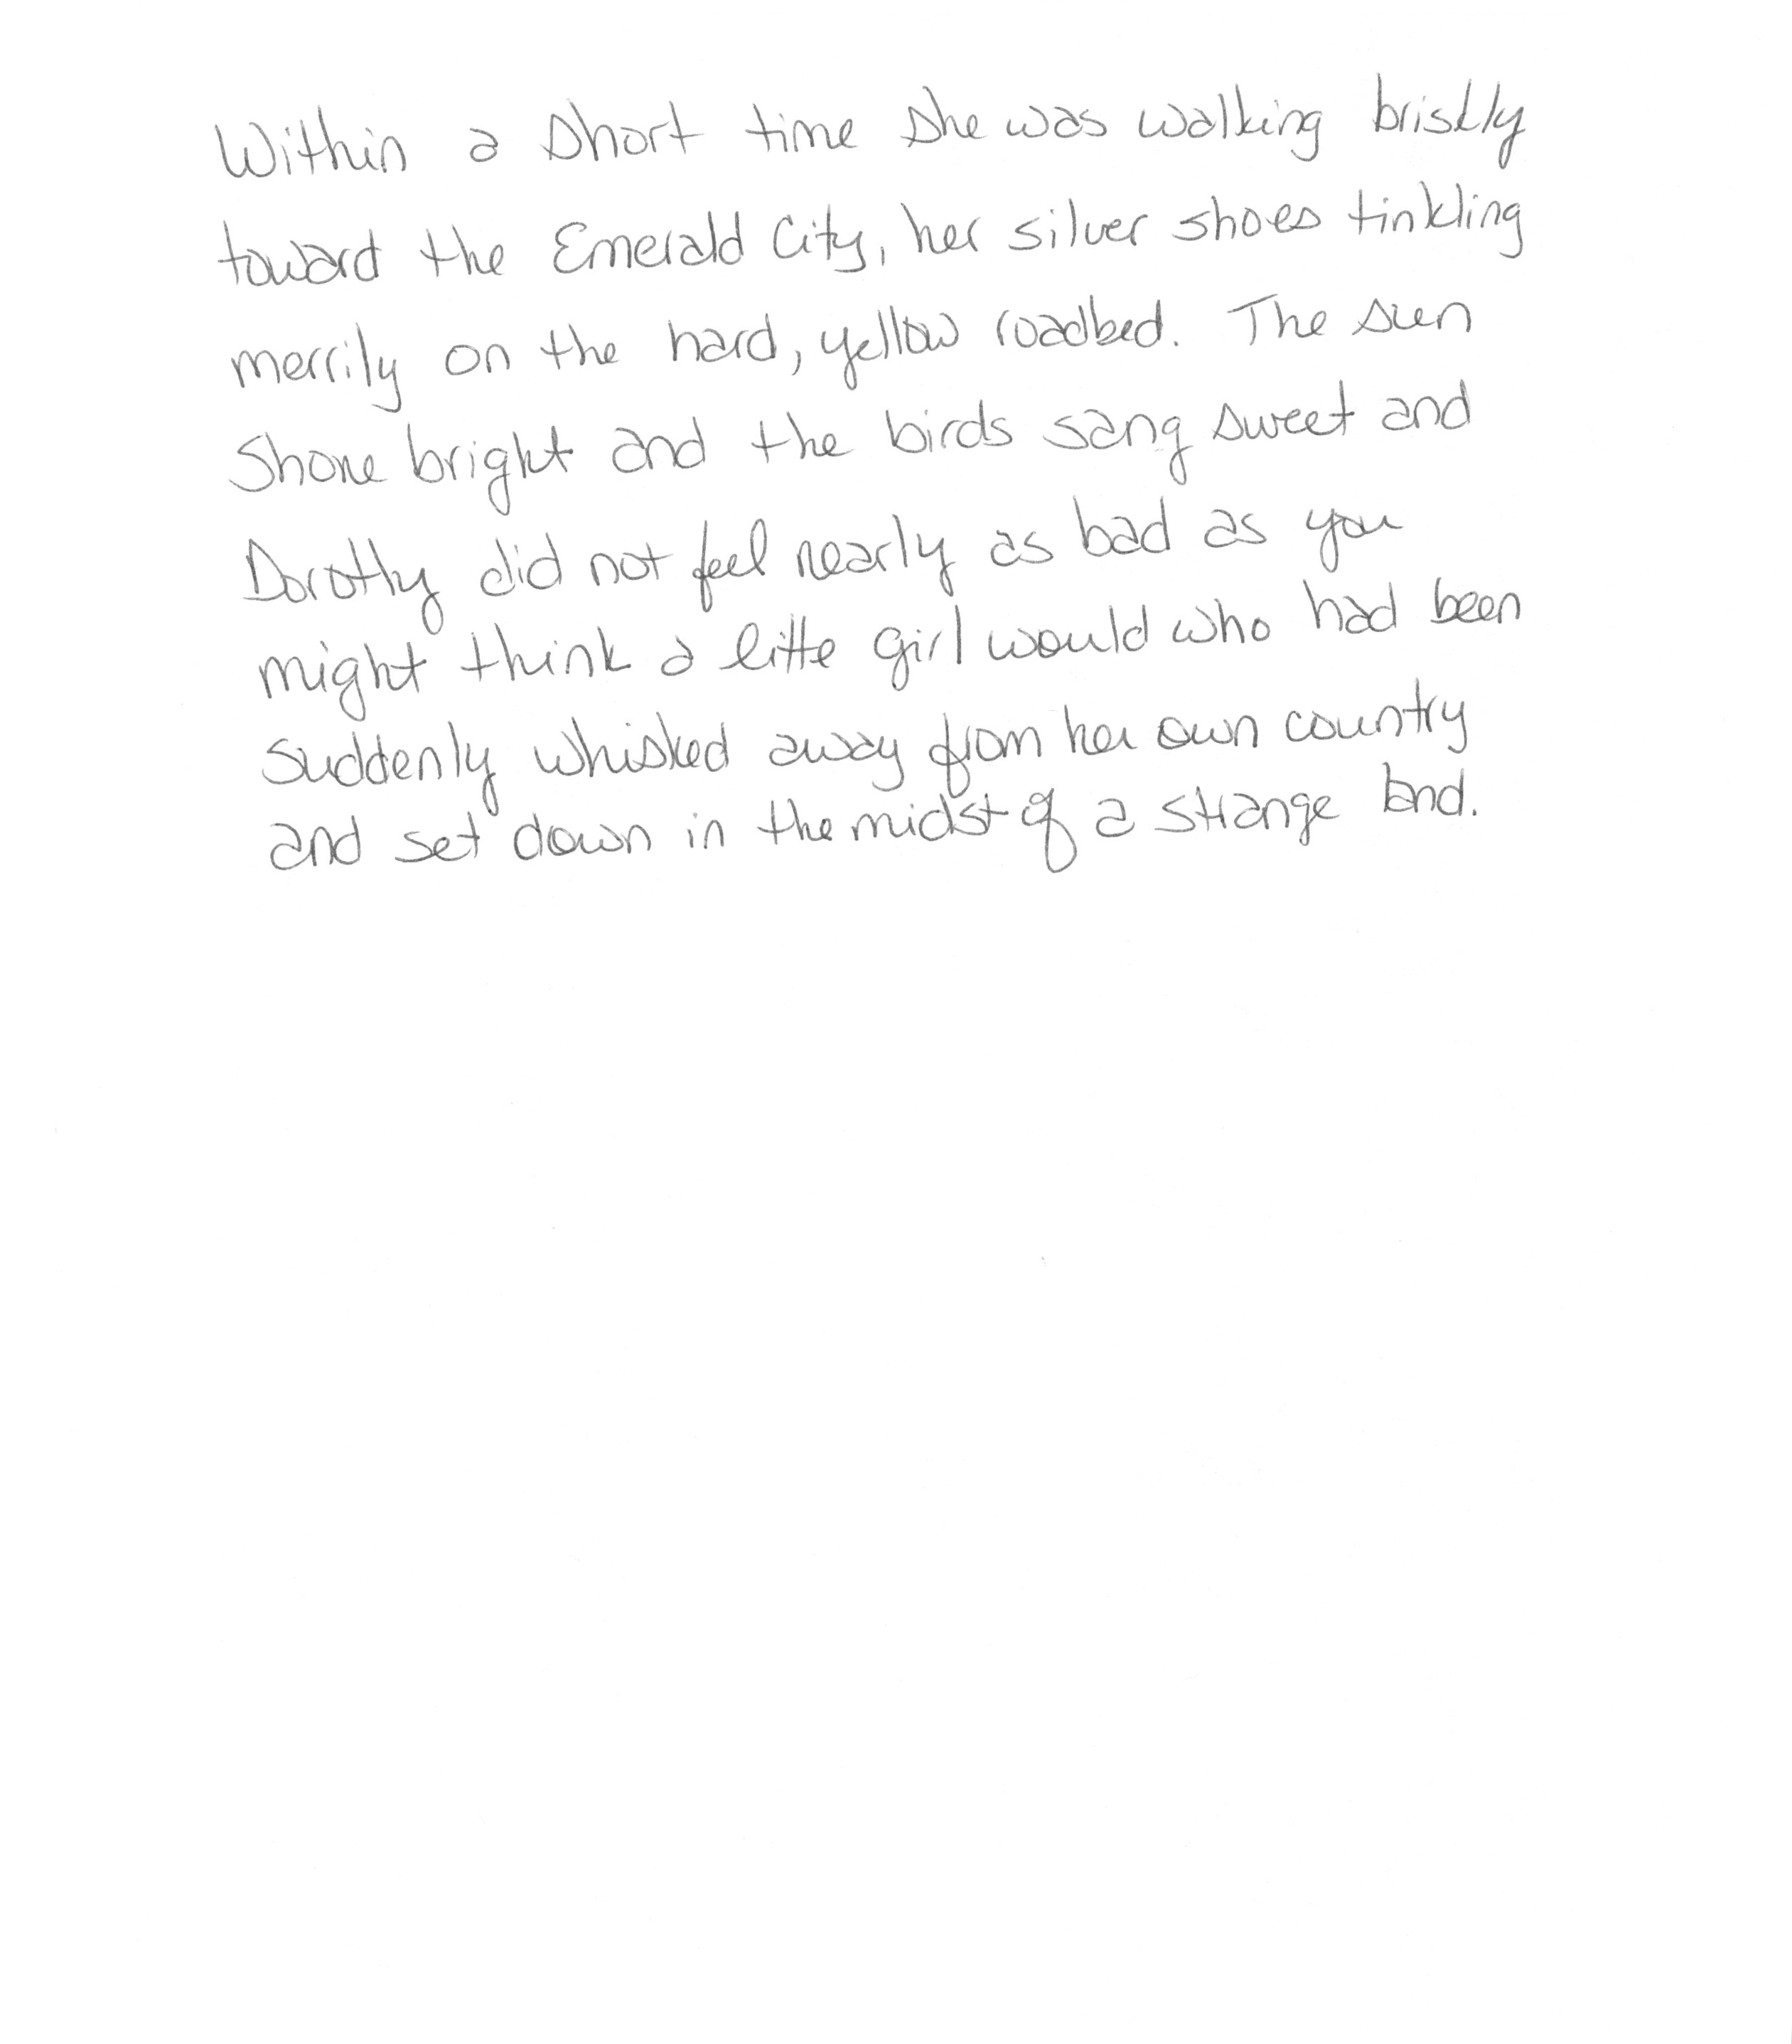 Within a short time she was walking briskly
toward the Emerald City, her silver shoes tinkling
merrily on the hard, yellow roadbed. The sun
shone bright and the birds sang sweet and
Dorothy did not feel nearly as bad as you
might think a litte girl would who had been
suddenly whisked away from her own country
and set down in the midst of a strange land.